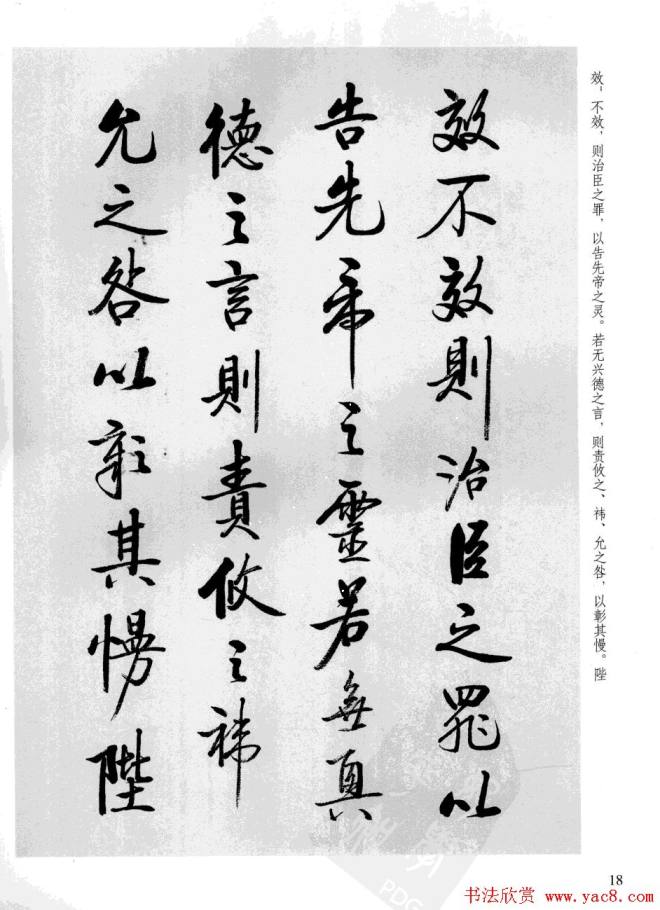 效，不效，则治臣之罪，以告先帝之灵。若无兴德之言，则责攸之、祎、允之咎，以彰其慢。陛
效不效則治臣之罪以
告先帝之靈若無興
德之言則責攸之禕
允之咎以彰其慢陛
18
书法欣赏 www.yac8.com